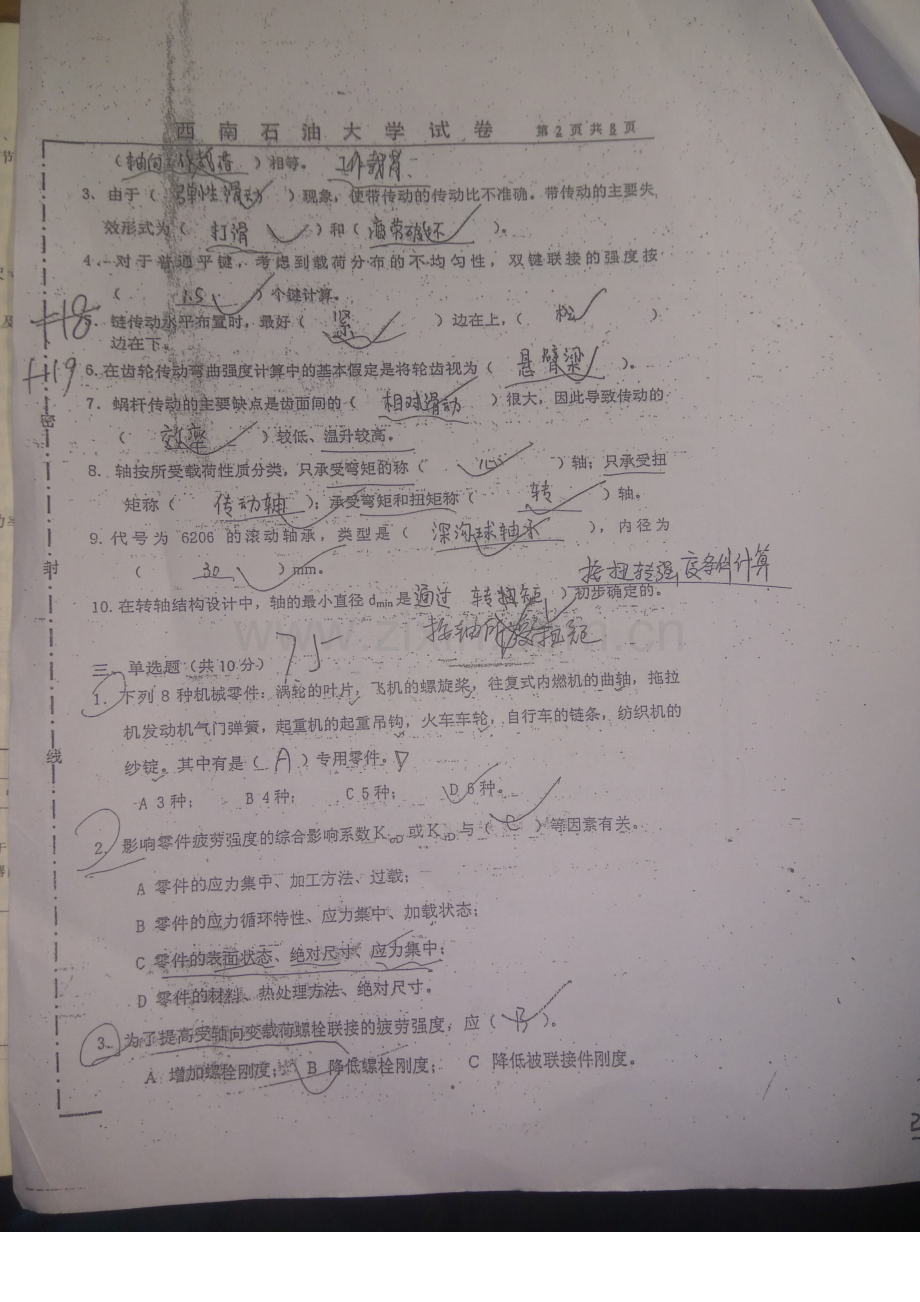 西南石油大学试卷 第2页共8页
)相等。
3、由于(弹性滑动)现象,使带传动的传动比不准确。带传动的主要失
效形式为(打滑)和(疲劳破坏)。
4、对于普通平键,考虑到载荷分布的不均匀性,双键联接的强度按
(1.5)个键计算。
+18
链传动水平布置时,最好(紧)边在上,(松)
边在下。
+19
6.在齿轮传动弯曲强度计算中的基本假定是将轮齿视为(悬臂梁)。
7.蜗杆传动的主要缺点是齿面间的(相对滑动)很大,因此导致传动的
(效率)较低、温升较高。
8.轴按所受载荷性质分类,只承受弯矩的称(心)轴;只承受扭
矩称(传动轴);承受弯矩和扭矩称(转)轴。
9.代号为 6206 的滚动轴承,类型是(深沟球轴承),内径为
(30)mm。
按扭转强度条件计算
10.在转轴结构设计中,轴的最小直径 dmin是通过 转扭矩)初步确定的。
按轴所受扭矩
三、单选题(共10分)
1.下列8种机械零件:涡轮的叶片,飞机的螺旋桨,往复式内燃机的曲轴,拖拉
机发动机气门弹簧,起重机的起重吊钩,火车车轮,自行车的链条,纺织机的
纱锭。其中有是(A)专用零件。D
A 3种; B 4种; C 5种; D 6种。
2.影响零件疲劳强度的综合影响系数KσD或KτD与(C)等因素有关。
A 零件的应力集中、加工方法、过载;
B 零件的应力循环特性、应力集中、加载状态;
C 零件的表面状态、绝对尺寸、应力集中;
D 零件的材料、热处理方法、绝对尺寸。
3.为了提高受轴向变载荷螺栓联接的疲劳强度,应(B)。
A 增加螺栓刚度; B 降低螺栓刚度; C 降低被联接件刚度。
密
封
线